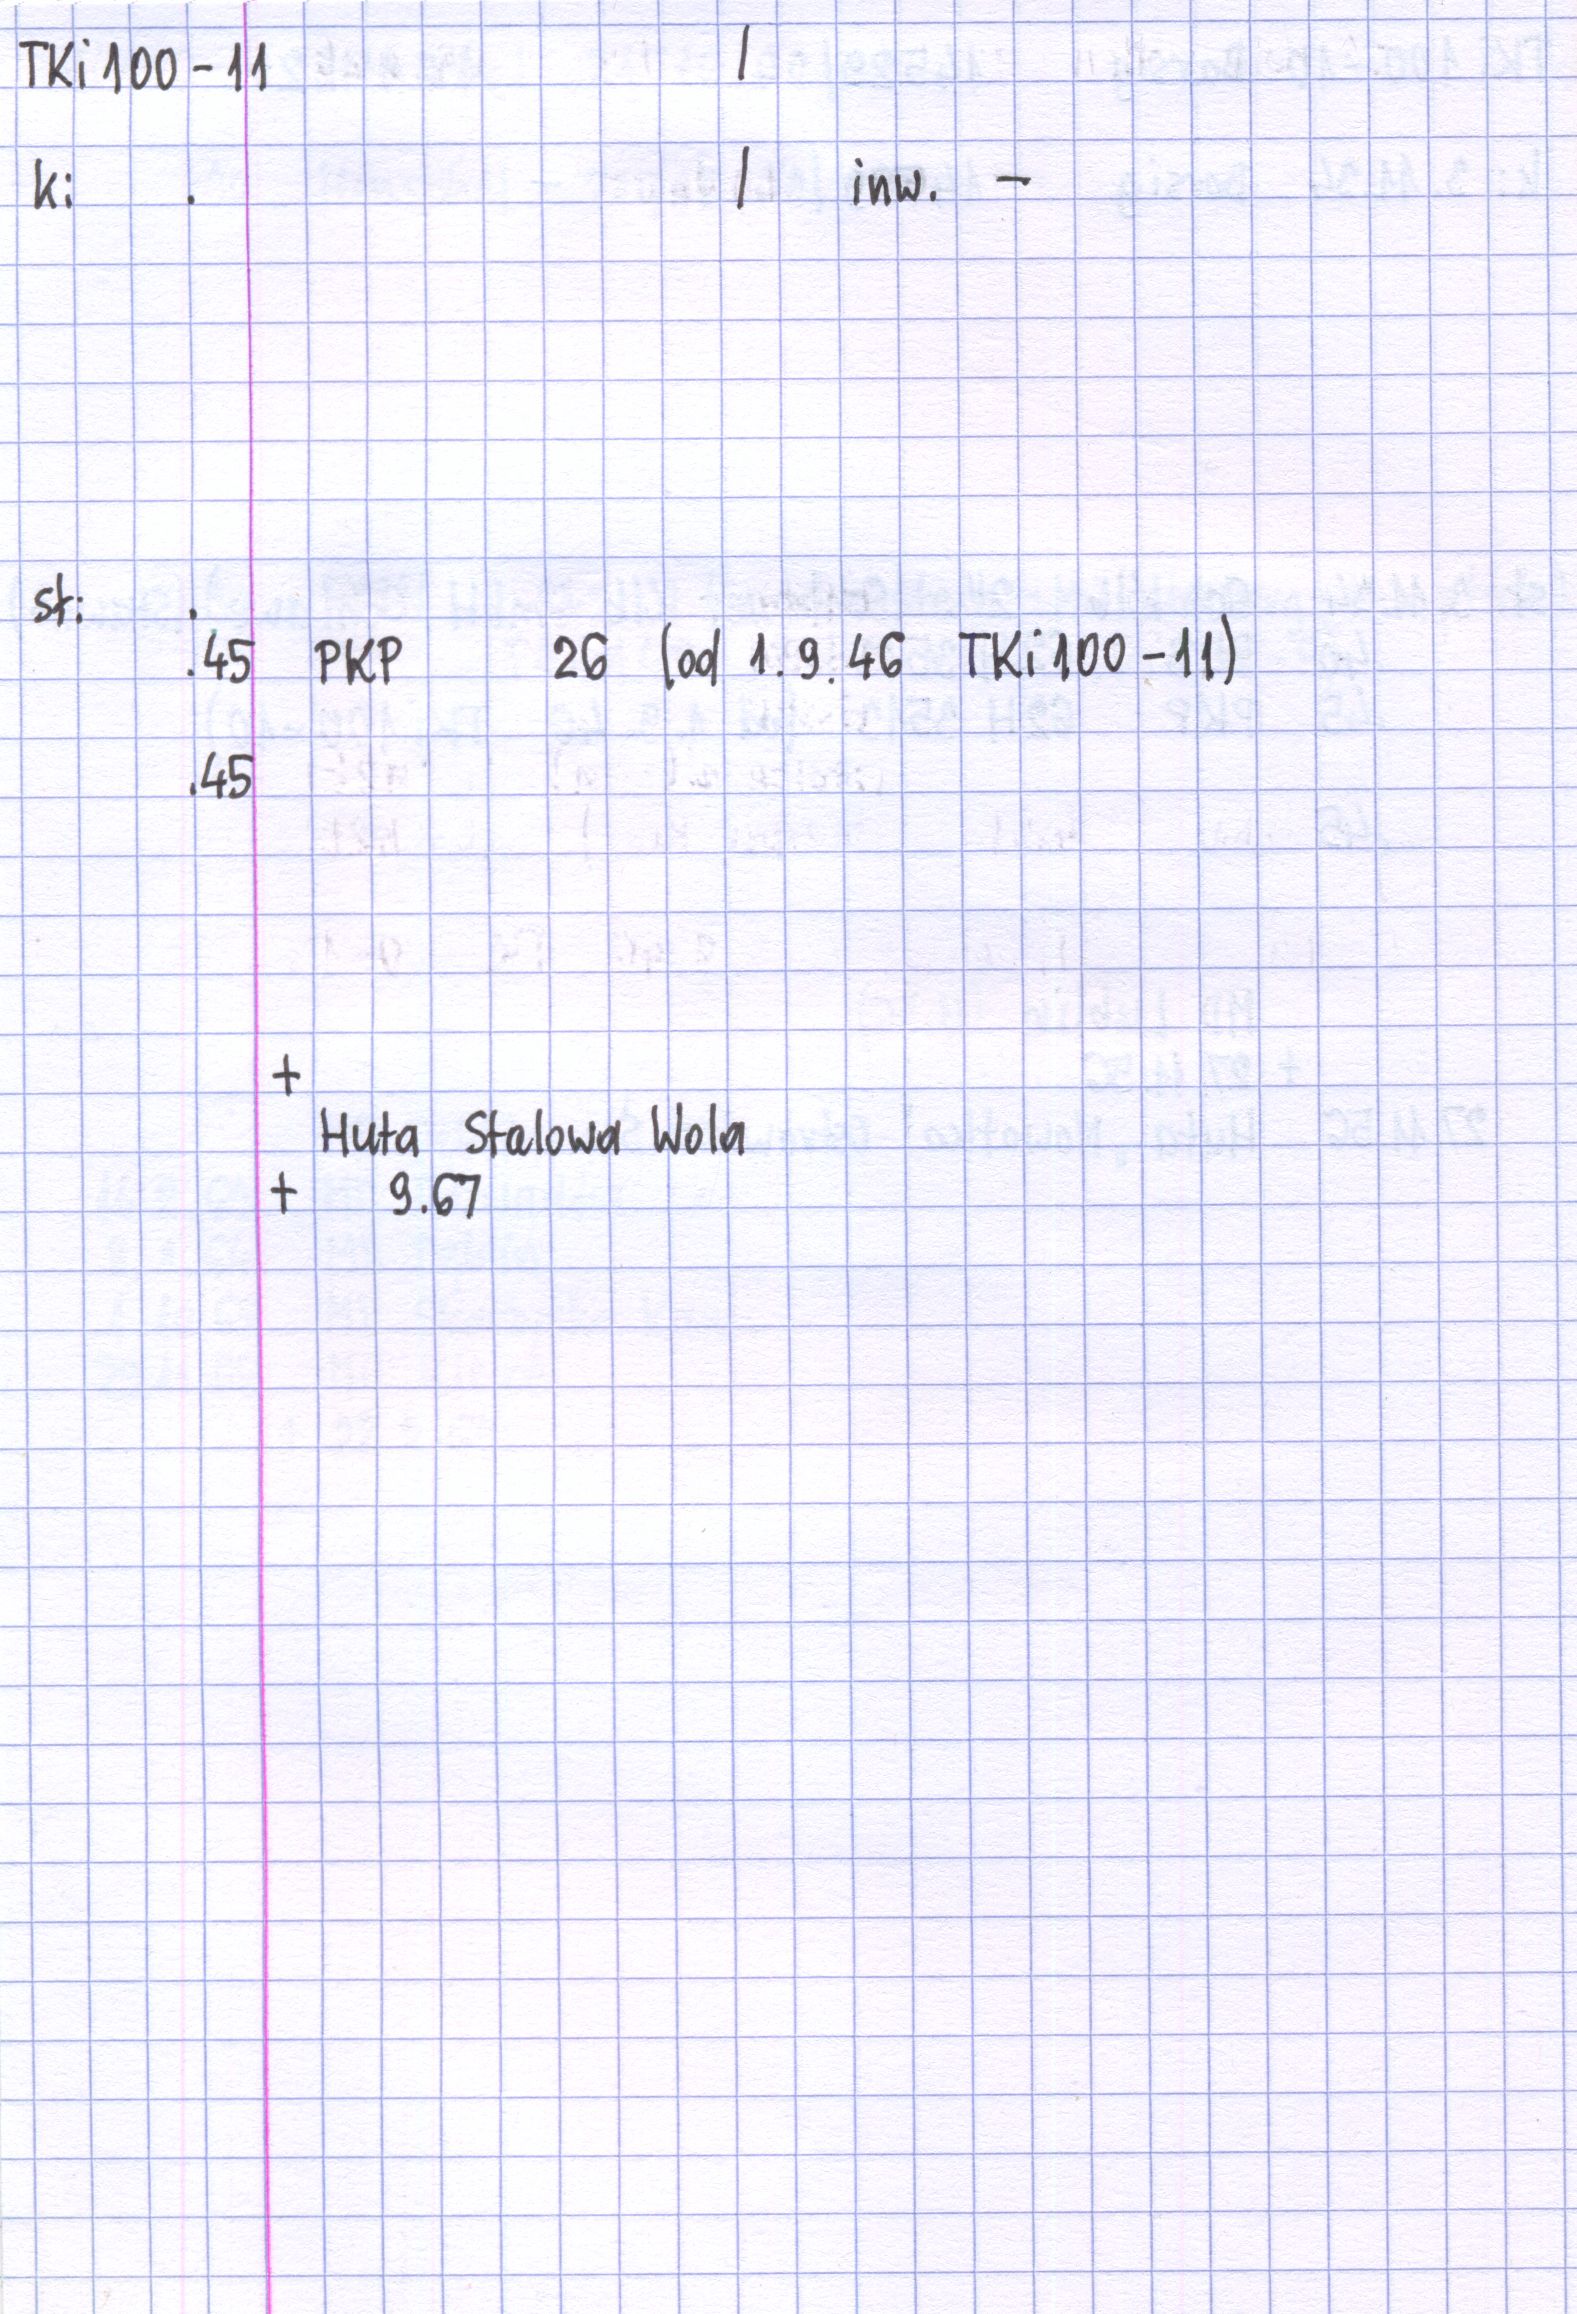 TKi100-11 /
k: . / inw. -
st: .
.45 PKP 26 (od 1.9.46 TKi100-11)
.45
+
Huta Stalowa Wola
+ 9.67